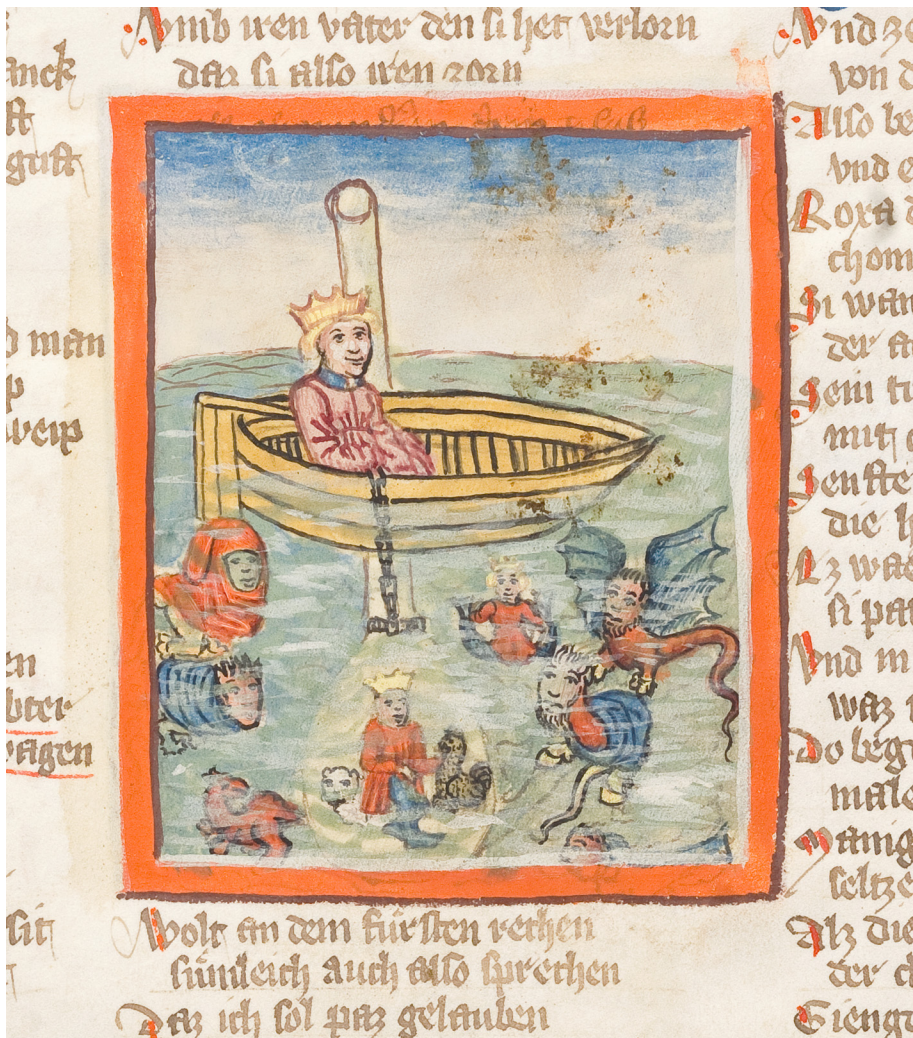 anck
st
grift
d man
p
weip
en
ohter
wagen
sit
Vmb iren vater den si het verlorn
daz si also iren zorn
Wolt an dem fürsten rechen
sümleich auch also sprechen
Daz ich sol paz gelauben
Vnd ze
von d
Also be
vnd e
Roxa d
chom
Si wan
der
Sein
mit
Senfte
die h
Az waz
si pa
Vnd in
waz
Do beg
male
Manig
seltze
Alz die
der
Gieng